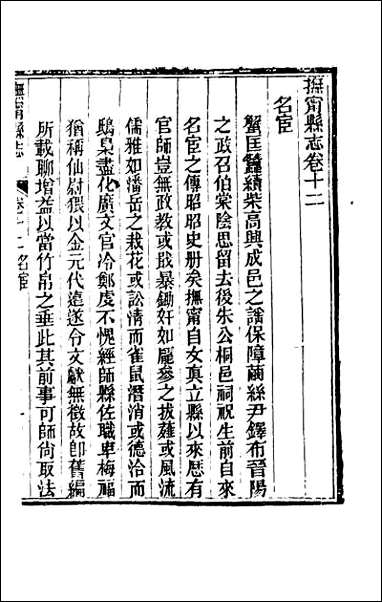 撫甯縣志卷十二
名宦
蟹匡蠶績柴高興成邑之謠保障繭絲尹鐸布晉陽
之政召伯棠陰思留去後朱公桐邑祠祝生前自來
名宦之傳昭昭史册矣撫甯自女真立縣以來歷有
官師豈無政教或戢暴鋤奸如龐參之拔薤或風流
儒雅如潘岳之栽花或訟清而雀鼠潛消或德洽而
鴟梟盡化廣文官冷鄭虔不愧經師縣佐職卑梅福
猶稱仙尉猥以金元代遠遂令文獻無徵故卽舊編
所載聊增益以當竹帛之垂此其前事可師尙取法
撫甯縣志
卷十二名宦
一